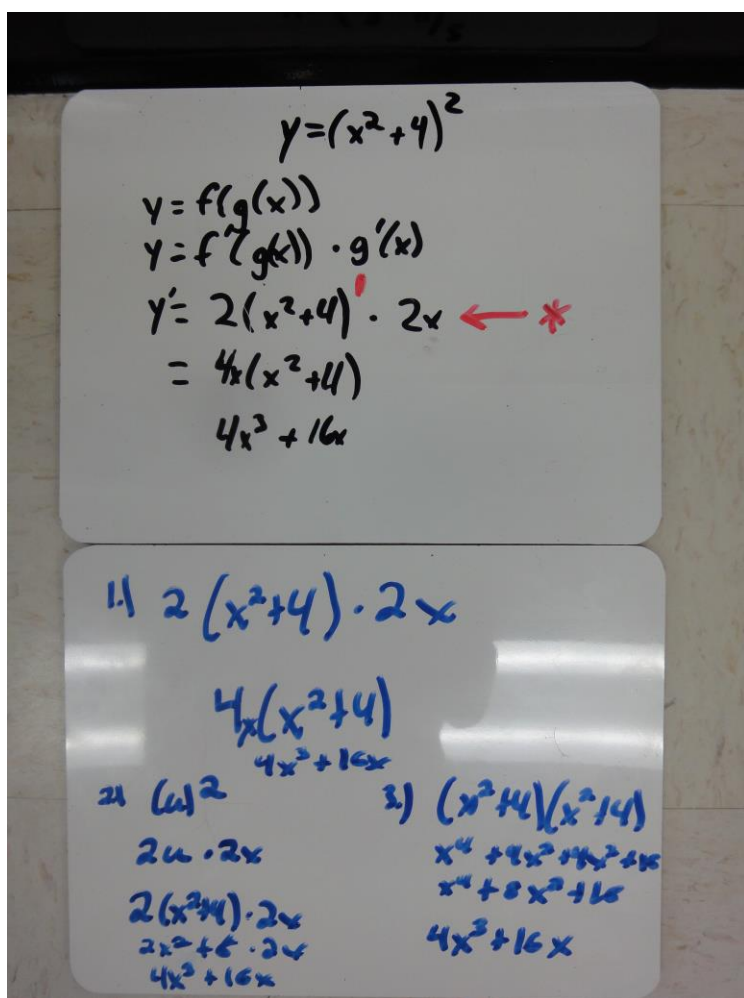 y=(x²+4)²
y = f(g(x))
y = f'(g(x)) · g'(x)
y' = 2(x²+4)' · 2x ← *
= 4x(x²+4)
4x³ + 16x
1.) 2(x²+4) · 2x
4x(x²+4)
4x³+16x
2.) (u)²
2u · 2x
2(x²+4) · 2x
2x²+8 · 2x
4x³+16x
3.) (x²+4)(x²+4)
x⁴ + 4x² + 4x² + 16
x⁴ + 8x² + 16
4x³+16x